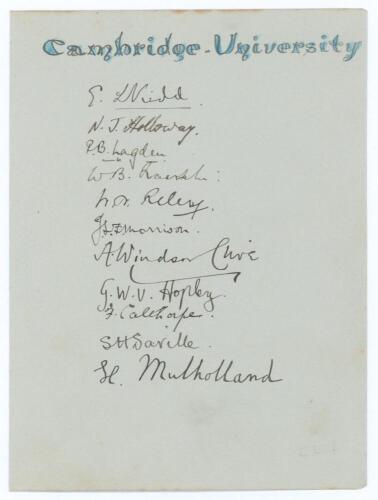 Cambridge-University
E. L. Kidd.
N. J. Holloway.
R. B. Lagden
W B. Franklin:
W. N. Riley.
J S F Morrison.
A Windsor Clive
G. W. V. Hopley.
F. Calthorpe.
S H Saville.
H. Mulholland